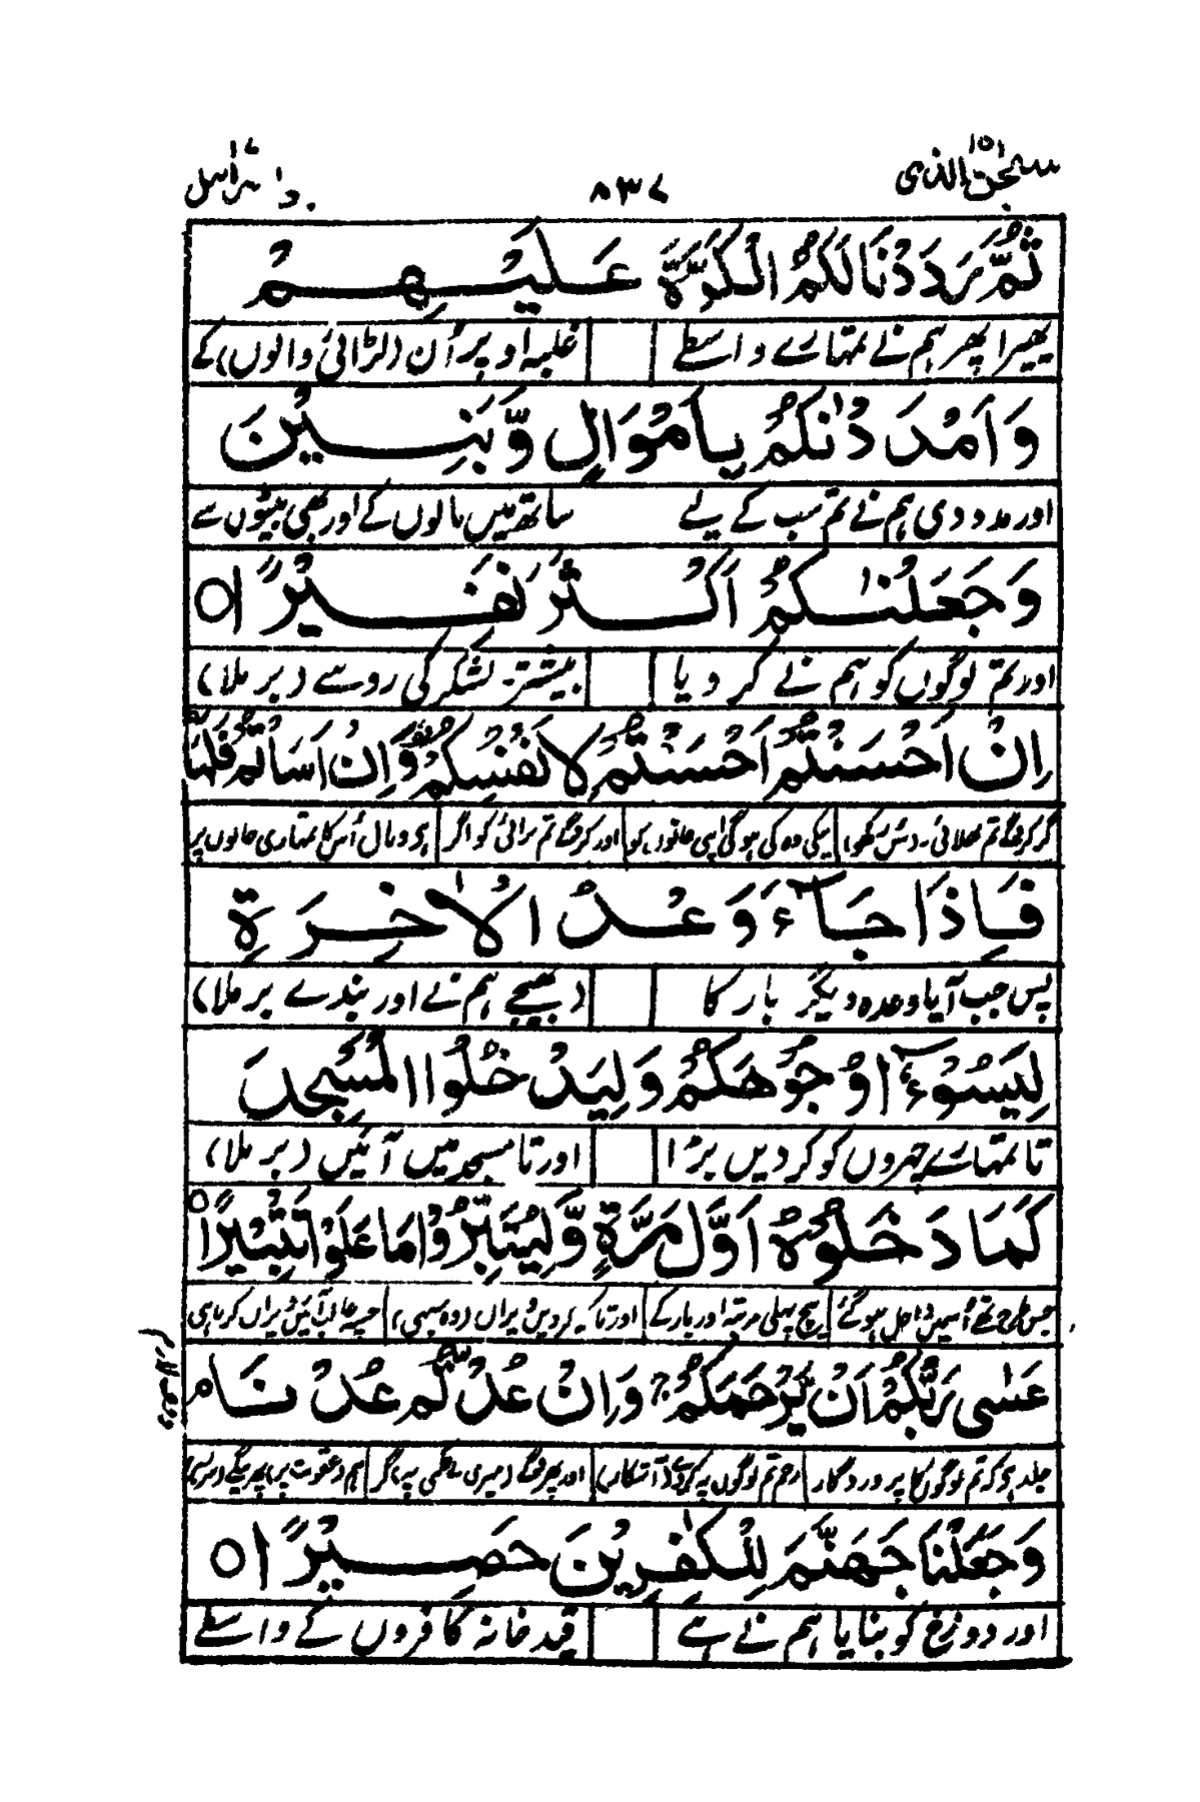 سبحٰن الذی ۱۵ ۸۳۷ بنی اسرآءیل ۱۷
ثُمَّ رَدَدْنَا لَكُمُ الْكَرَّةَ عَلَيْهِمْ
پھیرا پھر ہم نے تمہارے واسطے غلبہ اوپر اُن (لڑائی والوں) کے
وَاَمْدَدْنٰكُمْ بِاَمْوَالٍ وَّبَنِيْنَ
اور مدد دی ہم نے تم سب کے لیے ساتھ میں مالوں کے اور بھی بیٹوں سے
وَجَعَلْنٰكُمْ اَكْثَرَ نَفِيْرًا ۝
اور تم لوگوں کو ہم نے کر دیا بیشتر لشکر کی رو سے (بر ملا)
اِنْ اَحْسَنْتُمْ اَحْسَنْتُمْ لِاَنْفُسِكُمْ وَاِنْ اَسَاْتُمْ فَلَهَا
گر کروگے تم بھلائی نیکی وہ کی ہوگی اپنی جانوں کو اور کروگے تم برائی کو اگر ہے وبال اُس کا تمہاری جانوں پر
فَاِذَا جَآءَ وَعْدُ الْاٰخِرَةِ
پس جب آیا وعدہ دیگر بار کا (بھیجے ہم نے اور بندے بر ملا)
لِيَسُوْٓءٗا وُجُوْهَكُمْ وَلِيَدْخُلُوا الْمَسْجِدَ
تا تمہارے چہروں کو کر دیں بُرا اور تا مسجد میں آئیں (بر ملا)
كَمَا دَخَلُوْهُ اَوَّلَ مَرَّةٍ وَّلِيُتَبِّرُوْا مَا عَلَوْا تَتْبِيْرًا ۝
جس طرح تھے اُسمیں داخل ہوگئے بیچ پہلی مرتبہ اور بار کے اور تاکہ کردیں ویراں (وہ سبھی)
عَسٰى رَبُّكُمْ اَنْ يَّرْحَمَكُمْ وَاِنْ عُدْتُّمْ عُدْنَا م
جلد ہی کہ تم لوگوں کا پروردگار رحم تم لوگوں پہ کردے (آشکار) اور پھروگے
وَجَعَلْنَا جَهَنَّمَ لِلْكٰفِرِيْنَ حَصِيْرًا ۝
اور دوزخ کو بنایا ہم نے ہے قید خانہ کافروں کے واسطے
وقف لازم